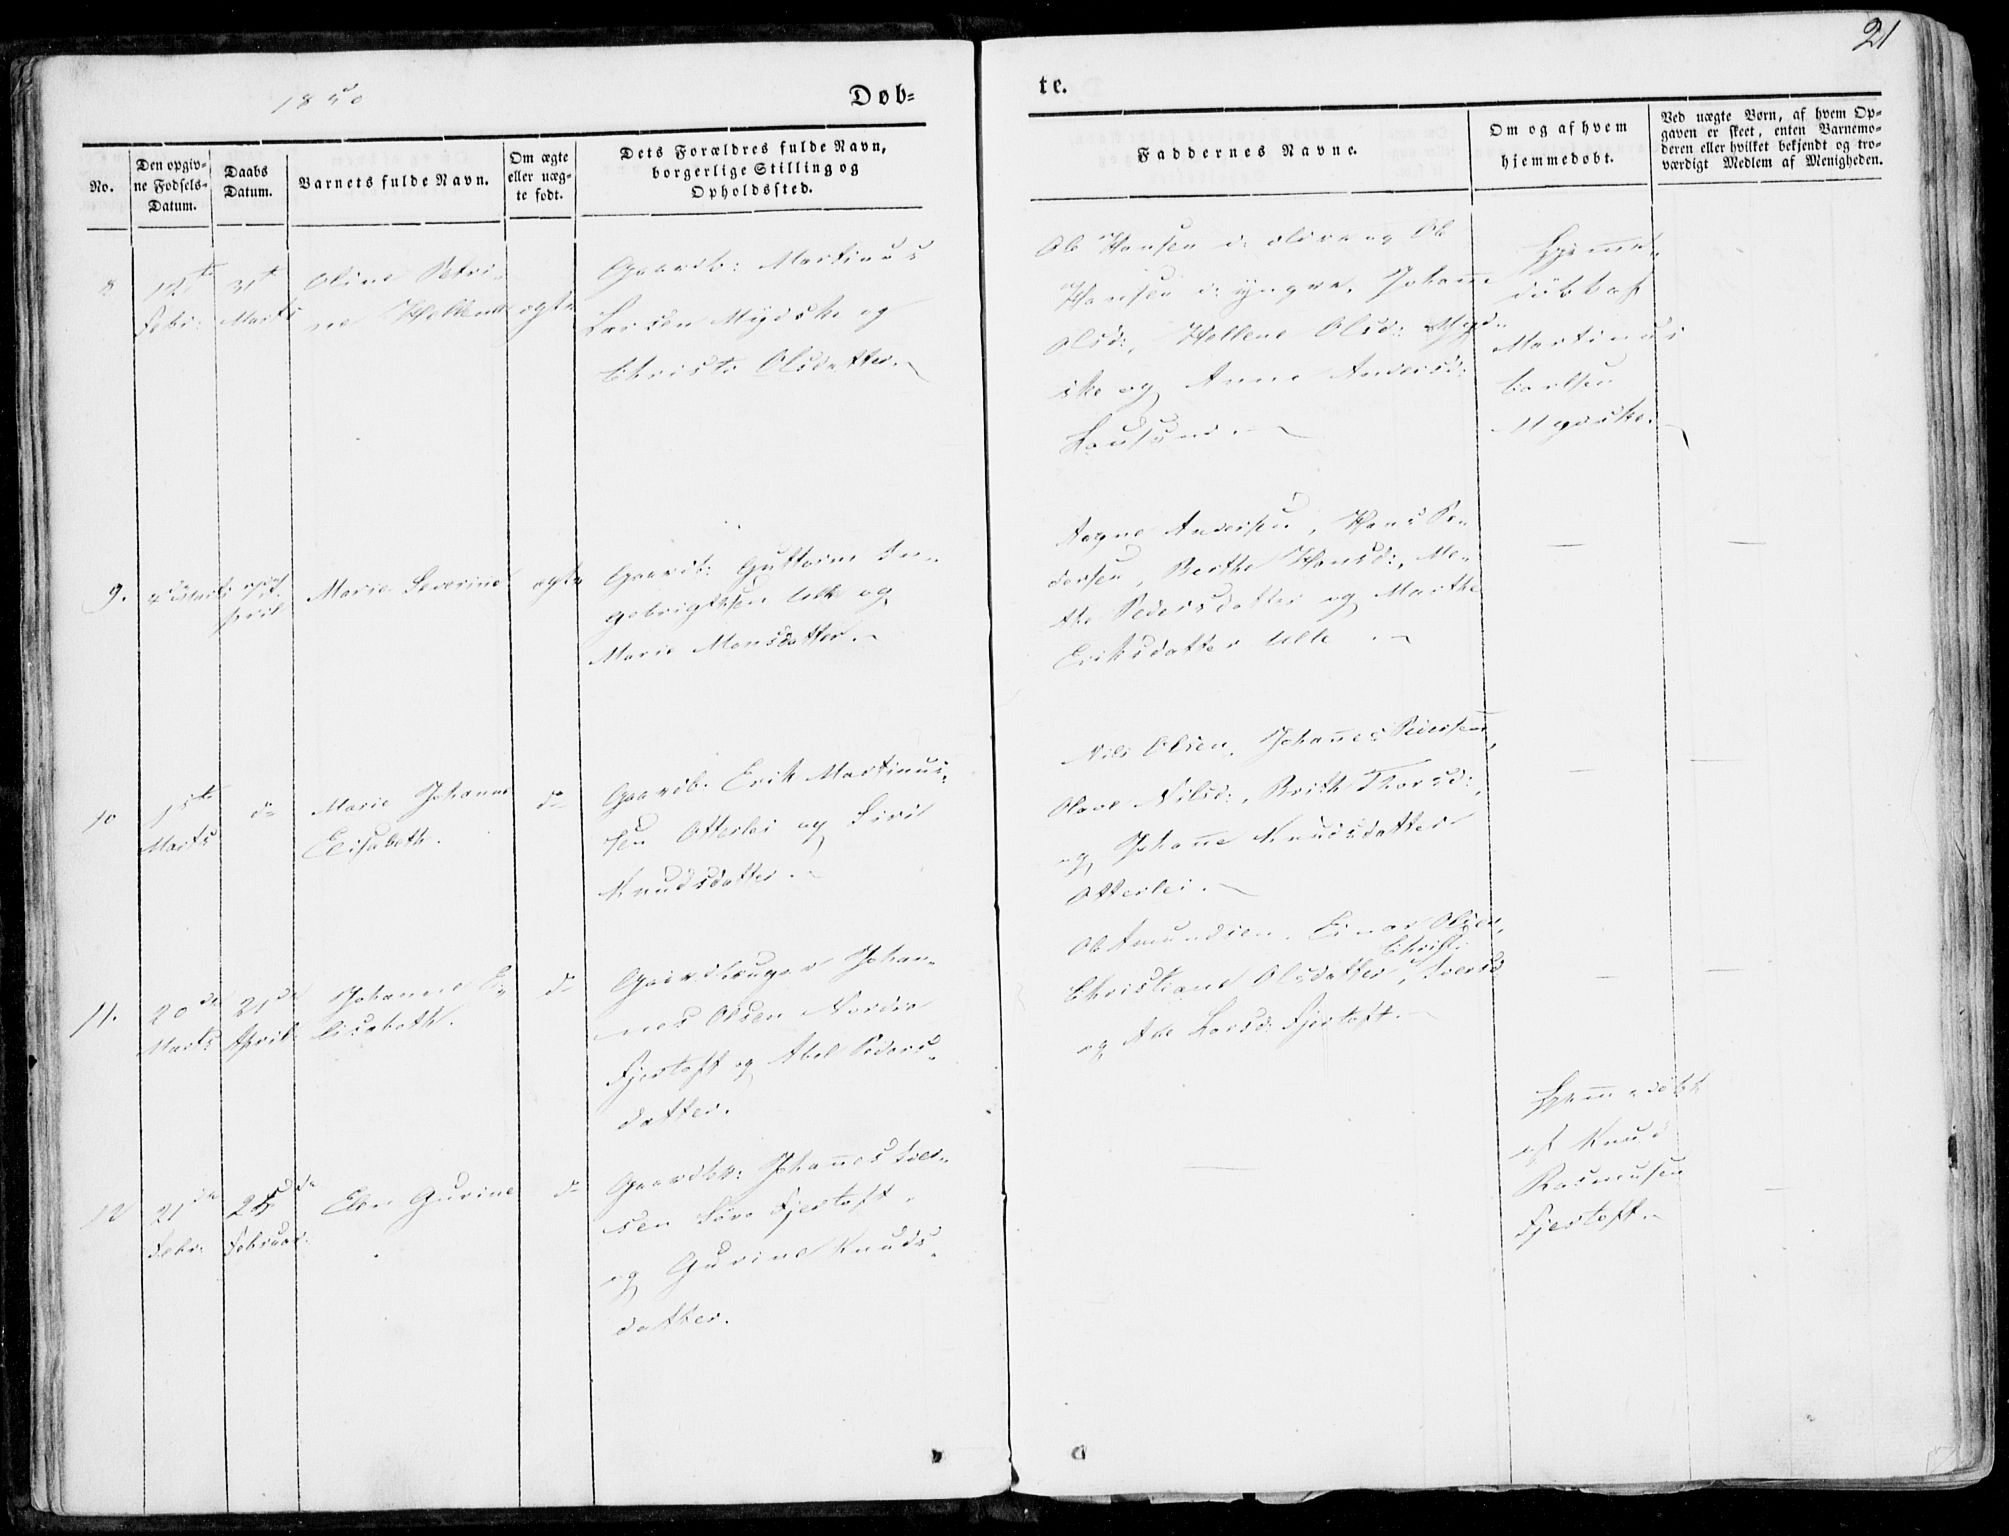 21
1850
Døb-
te.
No.
Den opgiv-
ne Fødsels-
Datum.
Daabs
Datum.
Barnets fulde Navn.
Om ægte
eller uæg-
te født.
Dets Forældres fulde Navn,
borgerlige Stilling og
Opholdssted.
Faddernes Navne.
Om og af hvem
hjemmedøbt.
Ved uægte Børn, af hvem Op-
gaven er skeet, enten Barnemo-
deren eller hvilket bekjendt og tro-
værdigt Medlem af Menigheden.
8
Febr:
31te
Marts
Oline Petri-
ne Hellene
ægte
Gaardb: Martinus
Larsen Mydske og
Christi Olsdatter.
Ole Hansen d: ældre og Ole
Hansen d: yngre, Johanne
Olsd:, Hellene Olsd: Myd-
ske og Anne Andersd:
Hjemme-
døbt af
Martinus
Mydske.
9.
4de Marts
April
Marie Severine
ægte
Gaardb: Guttorm In-
gebrigtsen Ulle og
Marie Monsdatter.
Aagne Andersen, Hans Pe-
dersen, Berthe Hansd:, Me-
the Pedersdatter og Marthe
Eriksdatter Ulle
10
Marts
do
Marie Johanne
Elisabeth.
do
Gaardb. Erik Martinus-
sen Otterlei og Siri
Knudsdatter.
Nils Olsen, Johannes Pedersen,
Olave Nilsd:, Brith Thorsd:,
og Johanne Knudsdatter
Otterlei.
11.
20de
Marts
21de
April
Johanne E-
lisabeth.
do
Gaardbruger Johan-
nes Olsen Nordre
Fjertoft og Abel Peders-
datter.
Ole Amundsen, Einar Olsen,
Christi
Christiane Olsdatter, Iversd
og Ane Larsd: Fjertoft.
12
21de
Febr:
25de
Februar
Elen Gurine
do
Gaardbr: Johannes Iver-
sen Søre Fjertoft
og Gurine Knuds-
datter.
Hjemmedøbt
af Knud
Rasmusen
Fjertoft.